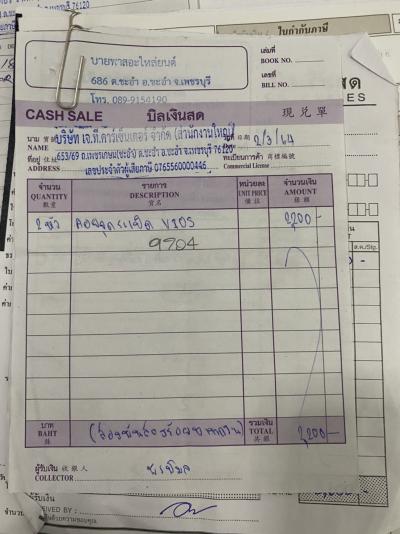 ใบกำกับภาษี
บายพาสอะไหล่ยนต์
686 ต.ชะอำ อ.ชะอำ จ.เพชรบุรี
โทร. 089-9154190
เล่มที่
BOOK NO.
เลขที่
BILL NO.
CASH SALE บิลเงินสด 現兑單
นาม บริษัท เจ.ที.คาร์เซ็นเตอร์ จำกัด (สำนักงานใหญ่) วันที่ 2/3/64
NAME 653/69 ถ.เพชรเกษม(ชะอำ) ต.ชะอำ อ.ชะอำ จ.เพชรบุรี 76120
ที่อยู่ ทะเบียนการค้า
ADDRESS เลขประจำตัวผู้เสียภาษี 0765560000446 Commercial License
จำนวน รายการ หน่วยละ จำนวนเงิน
QUANTITY DESCRIPTION UNIT PRICE AMOUNT
數量 貨名 備註 銀額
2 หัว คอยจุดระเบิด VIOS 2,200-
9704
บาท (สองพันสองร้อยบาทถ้วน) รวมเงิน
BAHT TOTAL 2,200-
銖 共銀
ผู้รับเงิน 收銀人
COLLECTOR